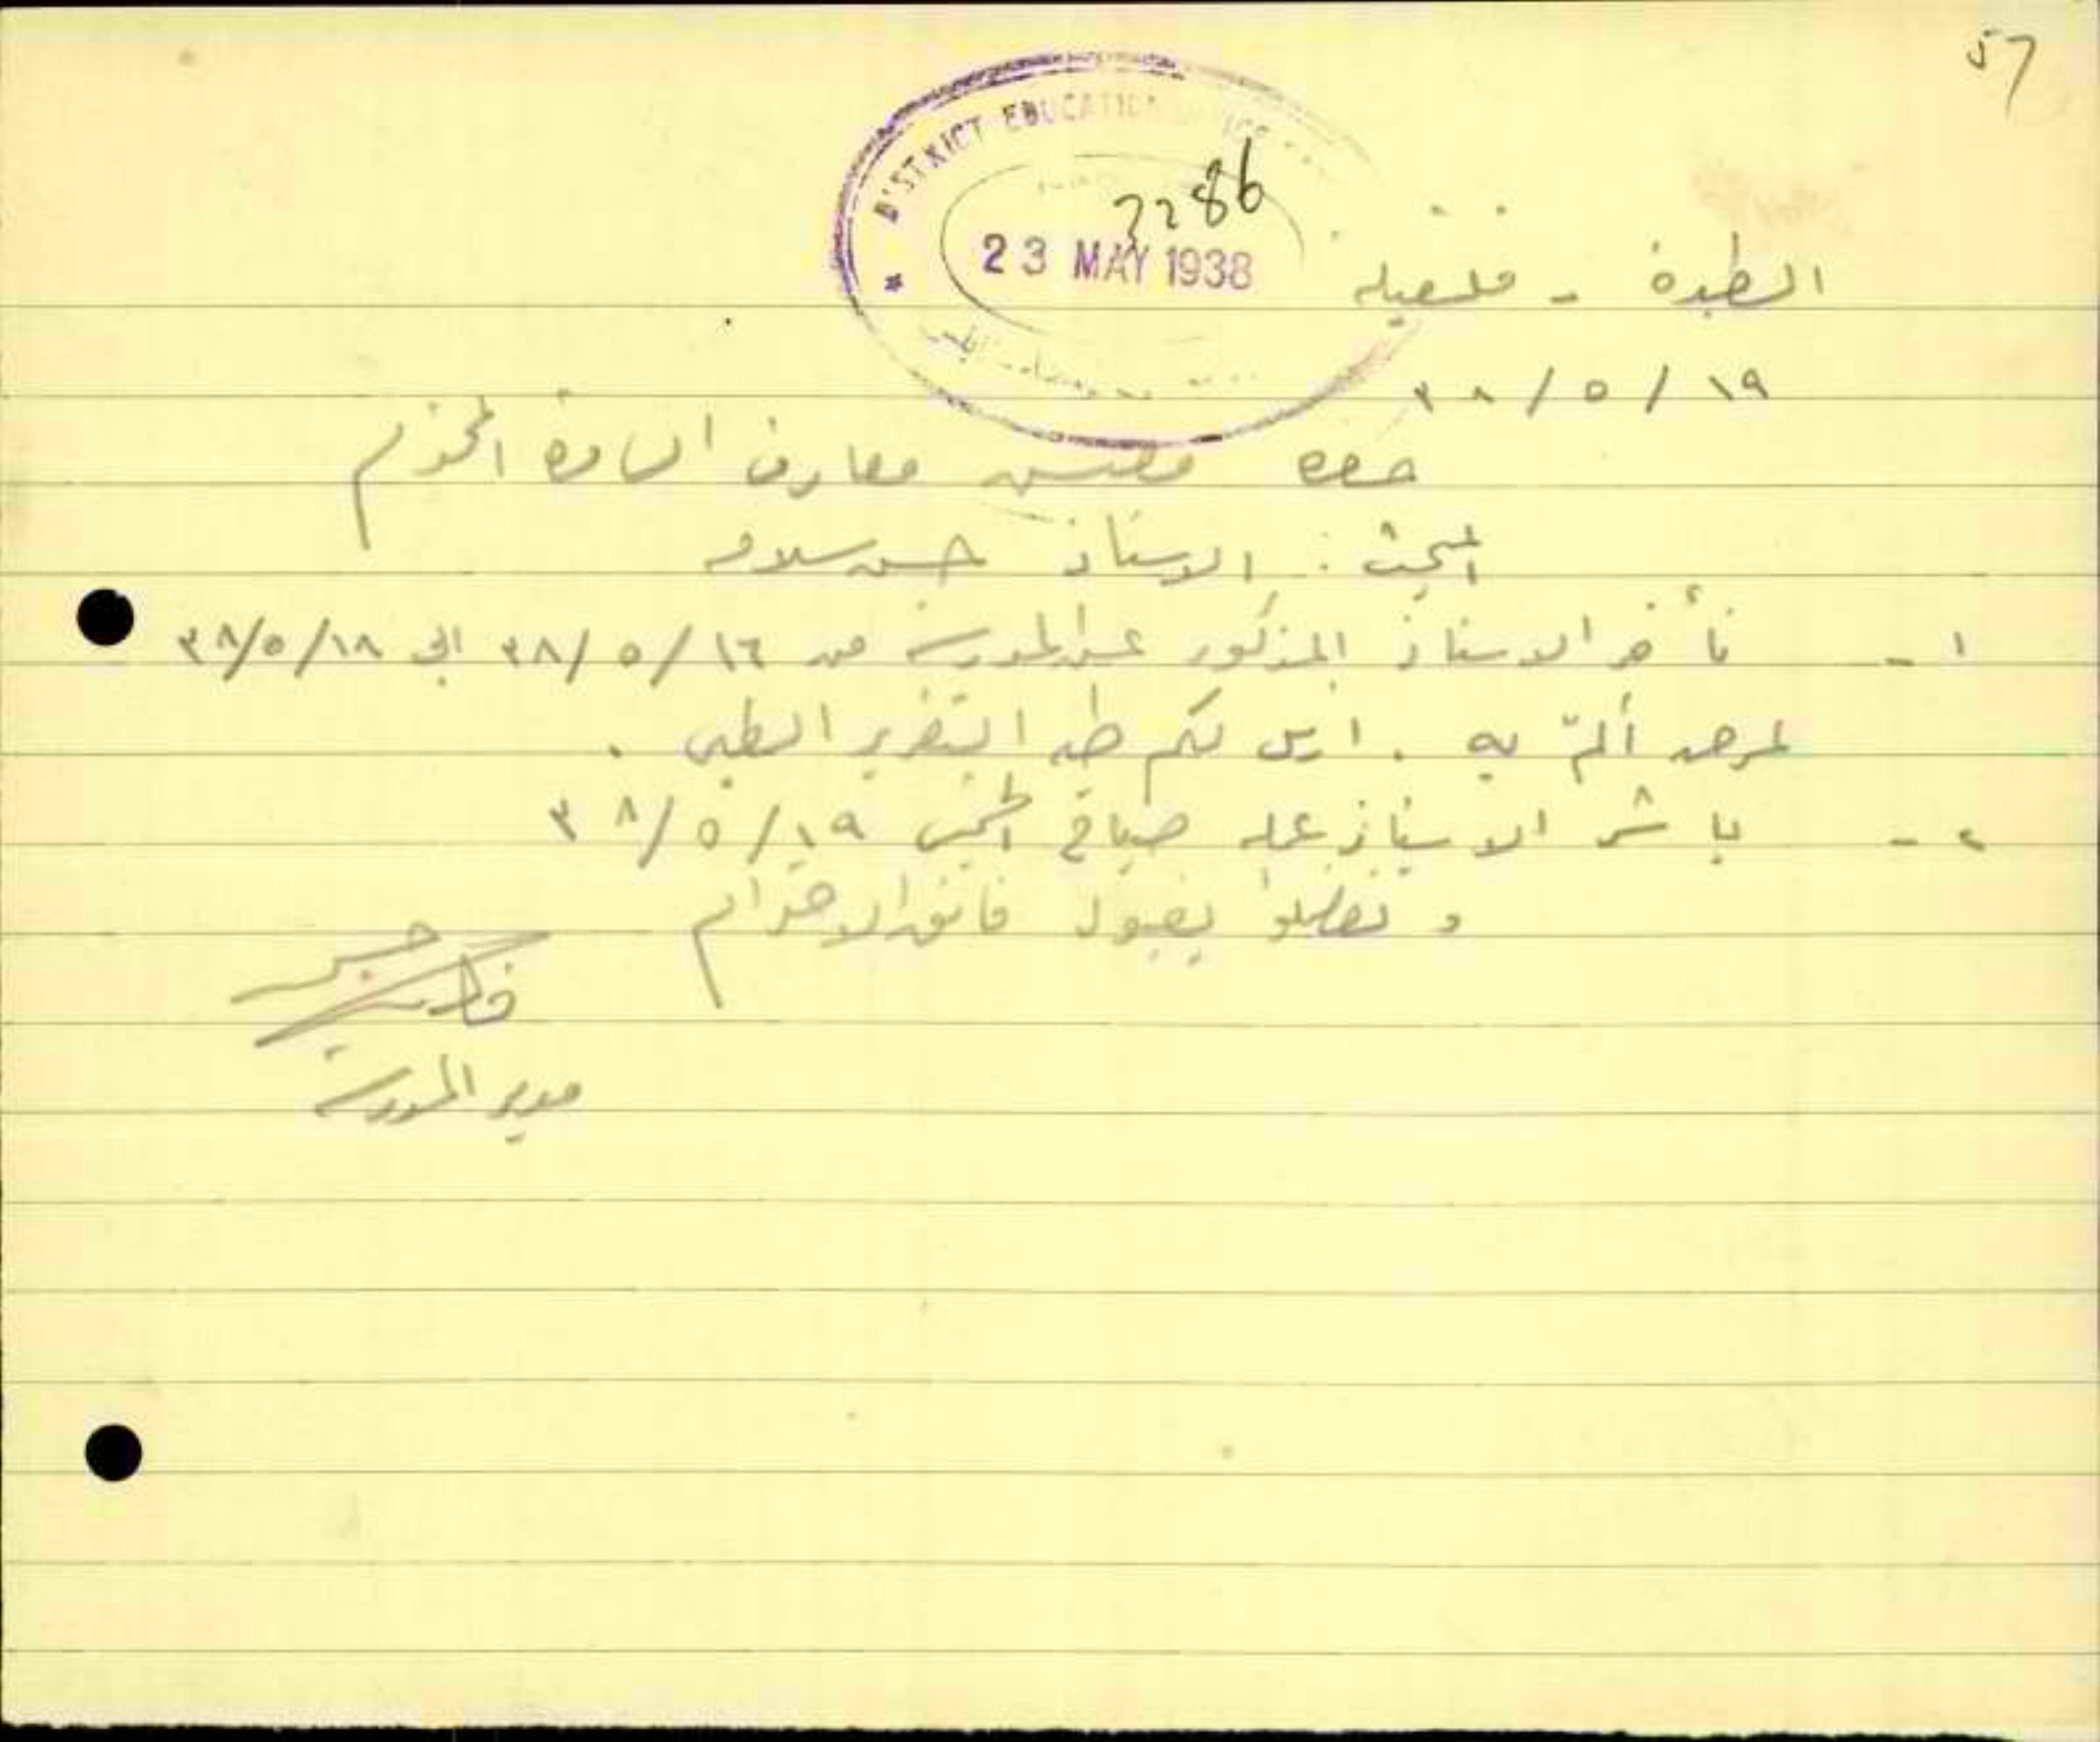 57
DISTRICT EDUCATION OFFICE
2286
23 MAY 1938
الطيرة - قلقيلية
١٩ / ٥ / ٣٨
حضرة مفتش معارف السامرة المحترم
المبحث : الاستاذ حسن سلامه
١ - تأخر الاستاذ المذكور عن المدرسة من ١٦ / ٥ / ٣٨ الى ١٨/٥/٣٨
لمرض ألمّ به . ارسل لكم طيه التقرير الطبي .
٢ - باشر الاستاذ عمله صباح الخميس ١٩/٥/٣٨
و تفضلوا بقبول فائق الاحترام
مدير المدرسة